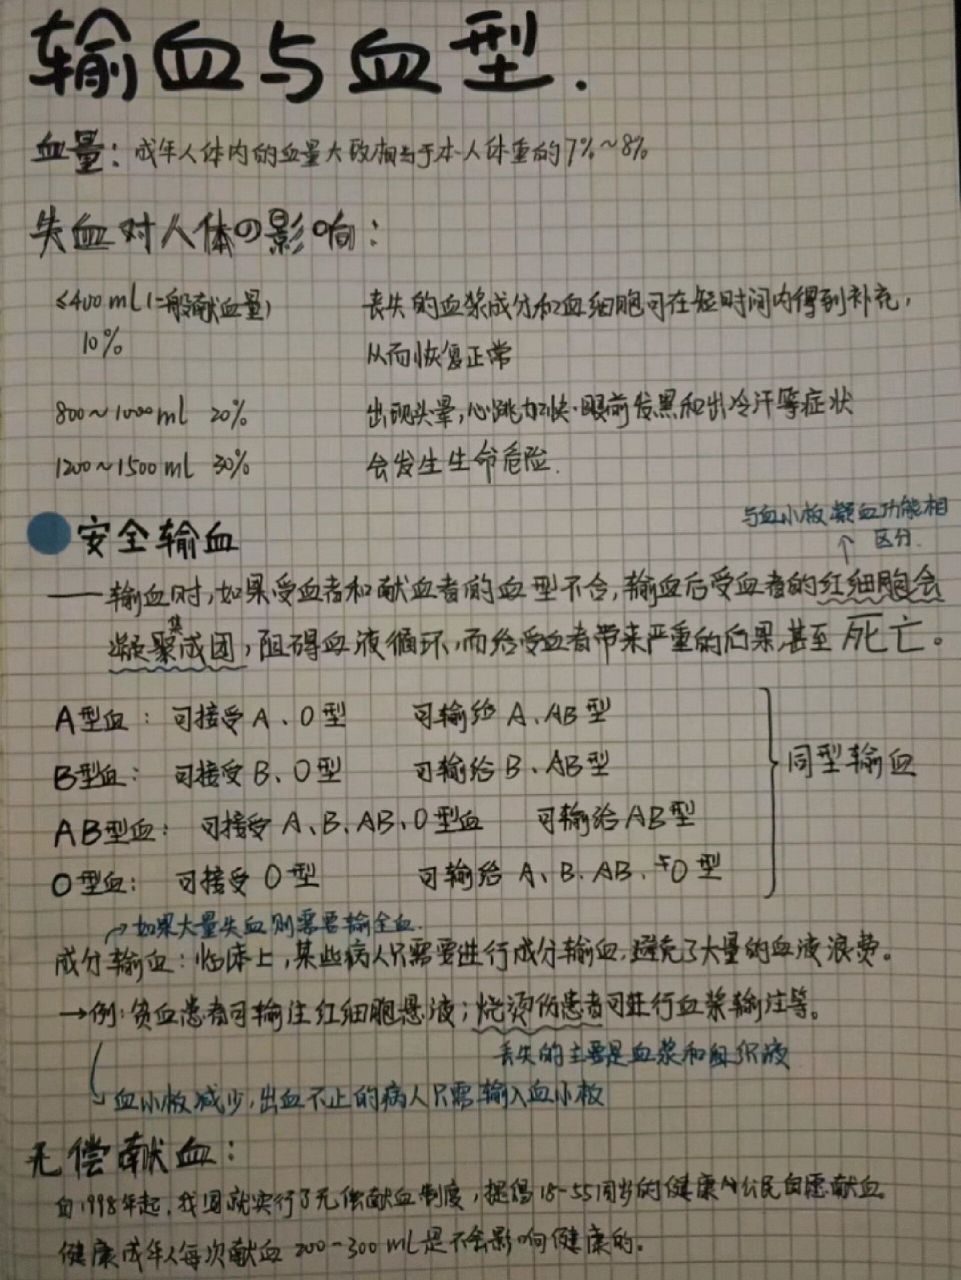 输血与血型.
血量：成年人体内的血量大致相当于本人体重的7%~8%
失血对人体的影响：
≤400ml(一般献血量) 丧失的血浆成分和血细胞可在短时间内得到补充，
10% 从而恢复正常
800~1000ml 20% 出现头晕，心跳加快·眼前发黑和出冷汗等症状
1200~1500ml 30% 会发生生命危险.
与血小板凝血功能相
区分.
安全输血
——输血时，如果受血者和献血者的血型不合，输血后受血者的红细胞会
集
凝聚成团，阻碍血液循环，而给受血者带来严重的后果，甚至死亡。
A型血：可接受A、O型 可输给A、AB型
B型血：可接受B、O型 可输给B、AB型
同型输血
AB型血：可接受A、B、AB、O型血 可输给AB型
O型血：可接受O型 可输给A、B、AB、与O型
→如果大量失血则需要输全血.
成分输血：临床上，某些病人只需要进行成分输血，避免了大量的血液浪费。
→例：贫血患者可输注红细胞悬液；烧烫伤患者可进行血浆输注等。
丢失的主要是血浆和组织液
血小板减少，出血不止的病人只需输入血小板
无偿献血：
自1998年起，我国就实行了无偿献血制度，提倡18-55周岁的健康公民自愿献血
健康成年人每次献血200-300mL是不会影响健康的。